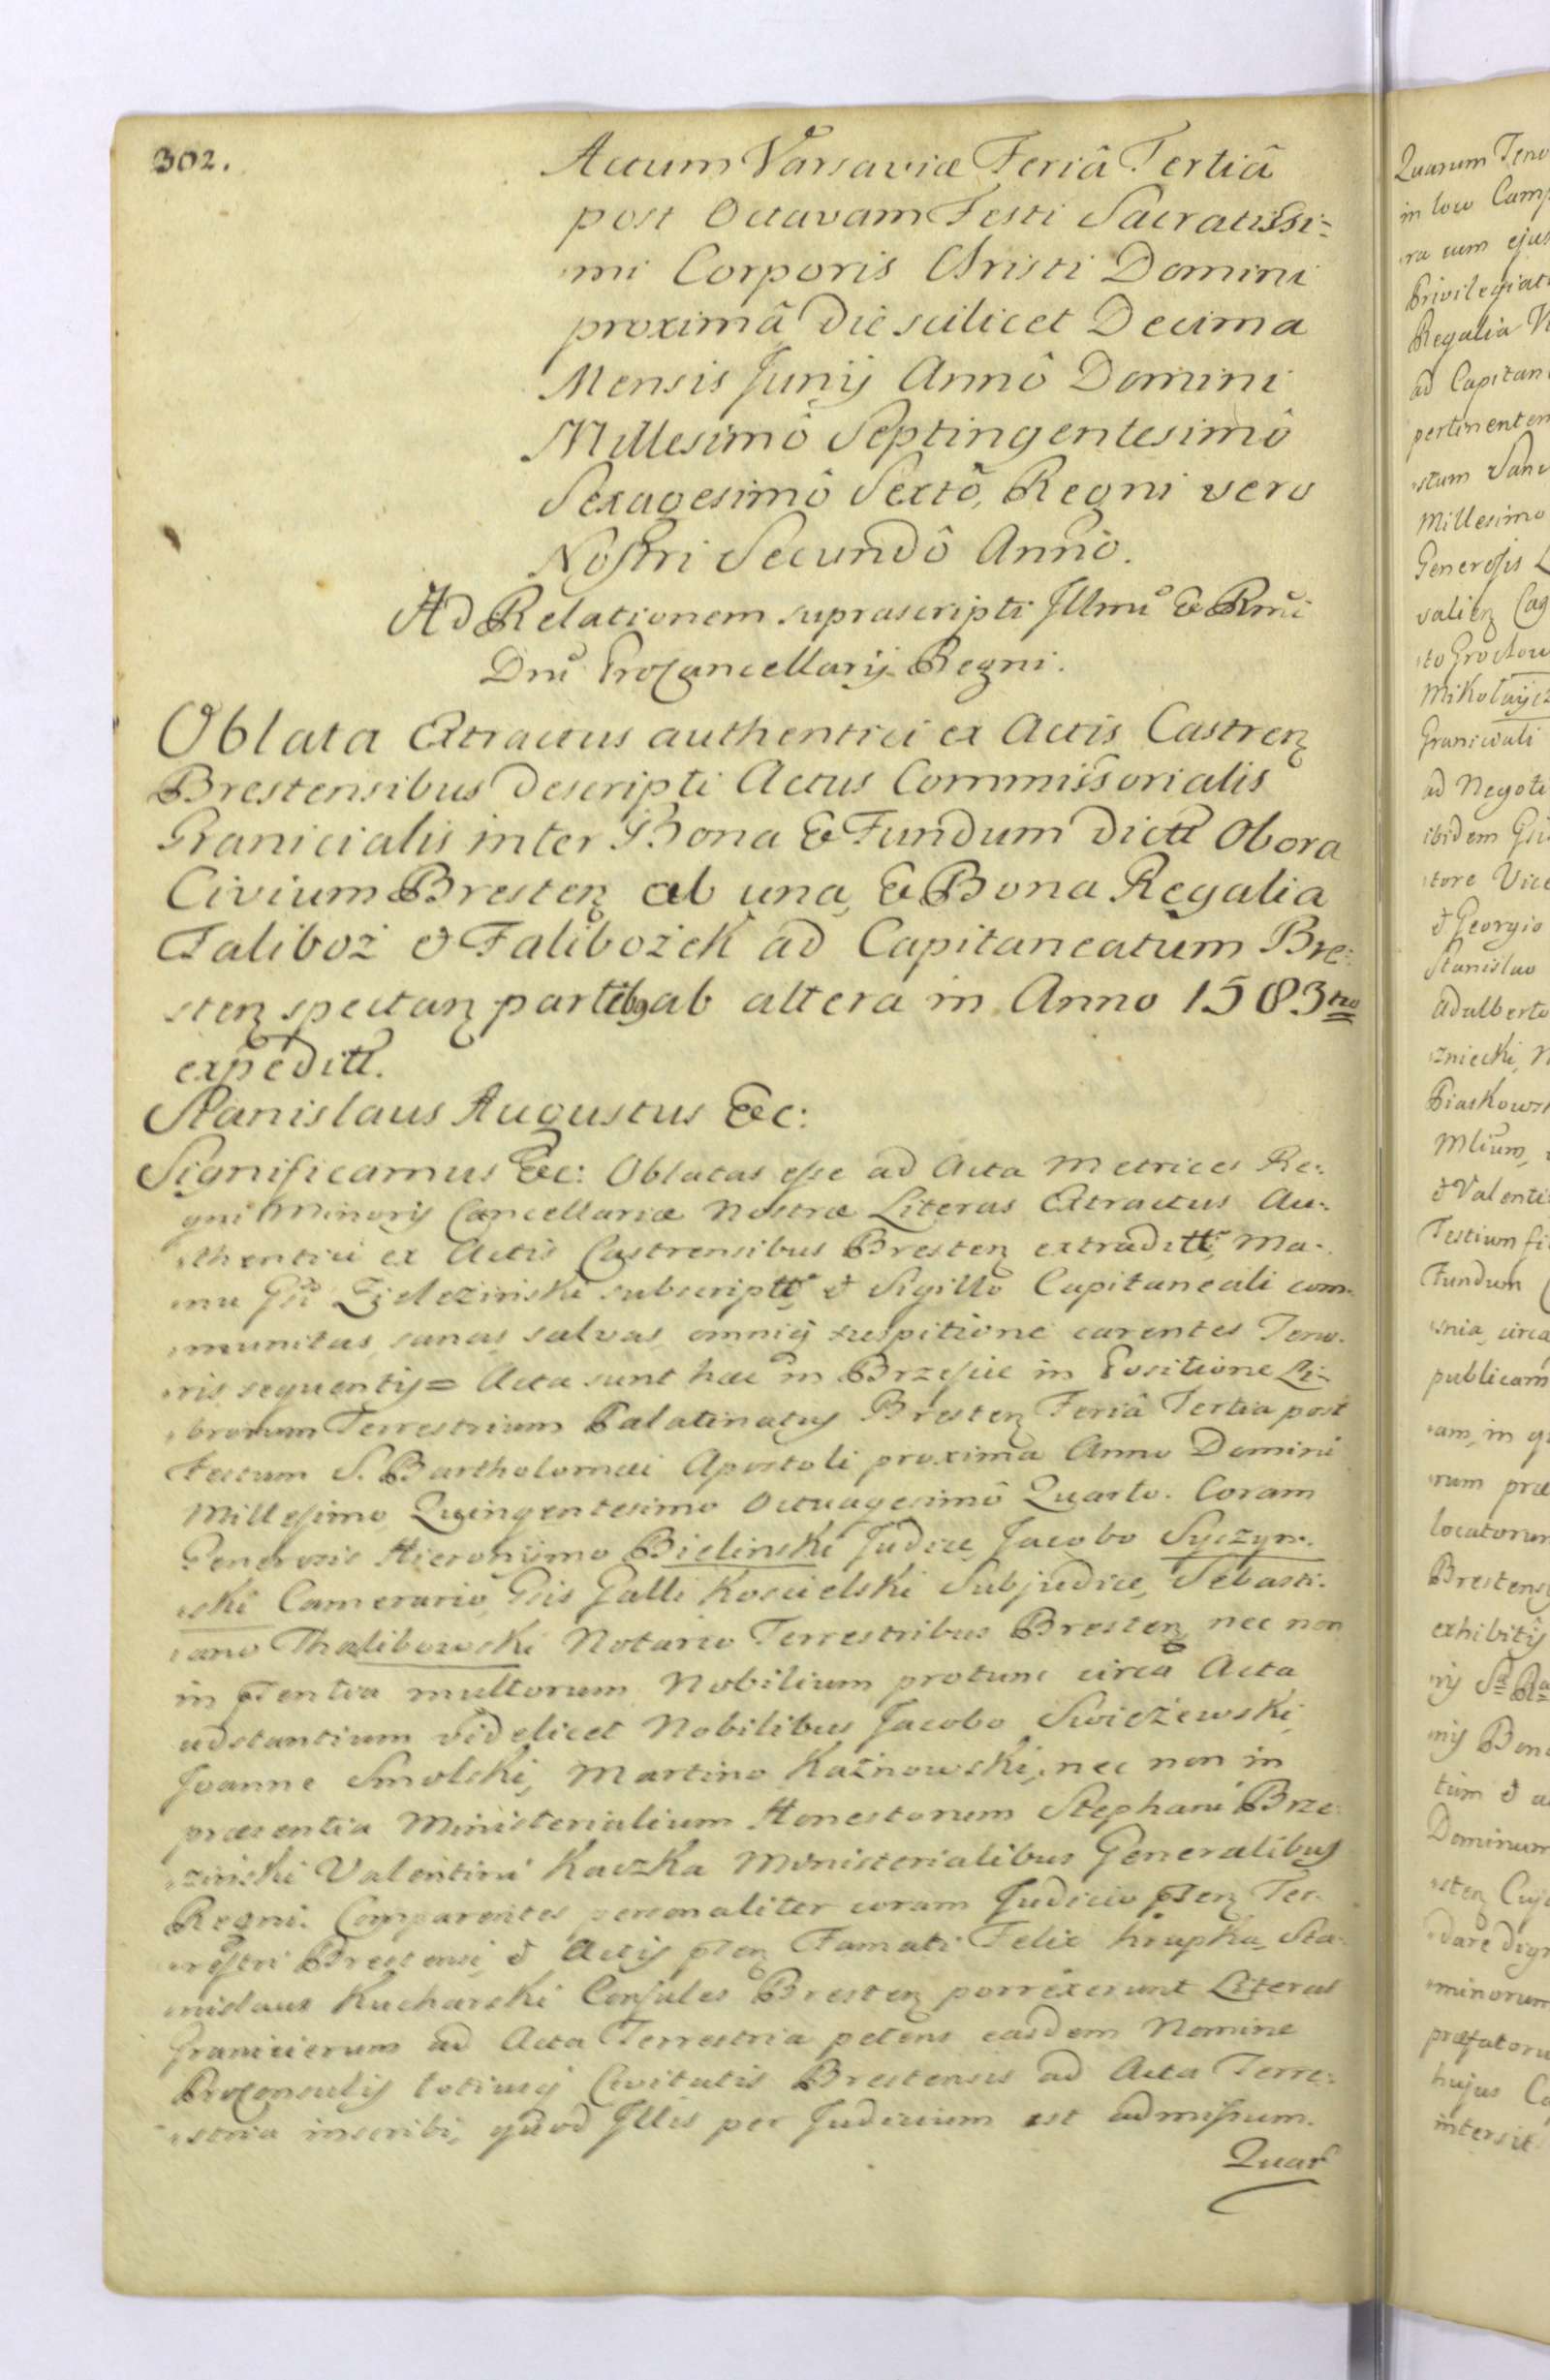 302.
Actum Varsaviæ Feriâ Tertiâ
post Octavam Festi Sacratissi-
mi Corporis Christi Domini
proximâ die scilicet Decima
Mensis Junij Annô Domini
Millesimô Septingentesimô
Sexagesimô Sextô, Regni vero
Nostri Secundô Annô.
Ad Relationem suprascripti Illmi & Rmi
Dni Procancellarij Regni.
Oblata Extractus authentici ex Actis Castren
Brestensibus descripti Actus Commissorialis
Granicialis inter Bona & Fundum dictt Obora
Civium Bresten ab una, & Bona Regalia
Faliboż & Falibożek ad Capitaneatum Bre-
sten spectan partibq ab altera in Anno 1583tio
expeditt.
Stanislaus Augustus &c:
Significamus &c: Oblatas esse ad Acta Metrices Re-
gni Minoris Cancellariæ Nostræ Literas Extractus Au-
thentici ex Actis Castrensibus Bresten extraditt, Ma-
nu Gsi Zielezinski subscriptt, & Sigillo Capitaneali com-
munitas, sanas, salvas, omniq suspitione carentes Teno-
ris sequentis = Acta sunt hæc in Brzescie in Positione Li-
brorum Terrestrium Palatinatus Bresten Feriâ Tertia post
Festum S. Bartholomæi Apostoli proxima Anno Domini
Millesimo Quingentesimo Octuagesimô Quarto. Coram
Generosis Hieronymo Bielinski Judice, Jacobo Syczyn-
ski Camerario Gsis Galli Koscielski Subjudice, Sebasti-
ano Thalibowski Notario Terrestribus Bresten nec non
in ptentia multorum Nobilium protunc circa Acta
adstantium videlicet Nobilibus Jacobo Swieżewski,
Joanne Smolski, Martino Kaźnowski, nec non in
præsentia Ministerialium Honestorum Stephani Brze-
zinski Valentini Kaczka Ministerialibus Generalibus
Regni. Comparentes personaliter coram Judicio pten Ter-
restri Brestensi & Actis pten Famati Felix Krupka, Sta-
nislaus Kucharski Consules Bresten porrexerunt Literas
Granicierum ad Acta Terrestria petens easdem Nomine
Proconsulis totiusq Civitatis Brestensis ad Acta Terre-
stria inscribi, quod Illis per Judicium est admissum.
Quar
Quarum Teno
in loco Camp
ra cum ejus
Privilegiat
Regalia
ad Capitan
pertinentem
stum Sanc
Millesimo
Generosis
valien
to Grochow
Mikolaycz
Granicali
ad Negoti
ibidem
tore Vice
& Georgio
Stanislao
Adalberto
zniecki,
Piaskows
Mlium,
& Valenti
Testium fi
Fundum
snia, circa
publicam
am, in q
rum præ
locatorum
Brestens
exhibitis
nis Bon
tum & a
Dominum
sten Cuj
dare dig
minorum
præfatoru
hujus Co
intersit